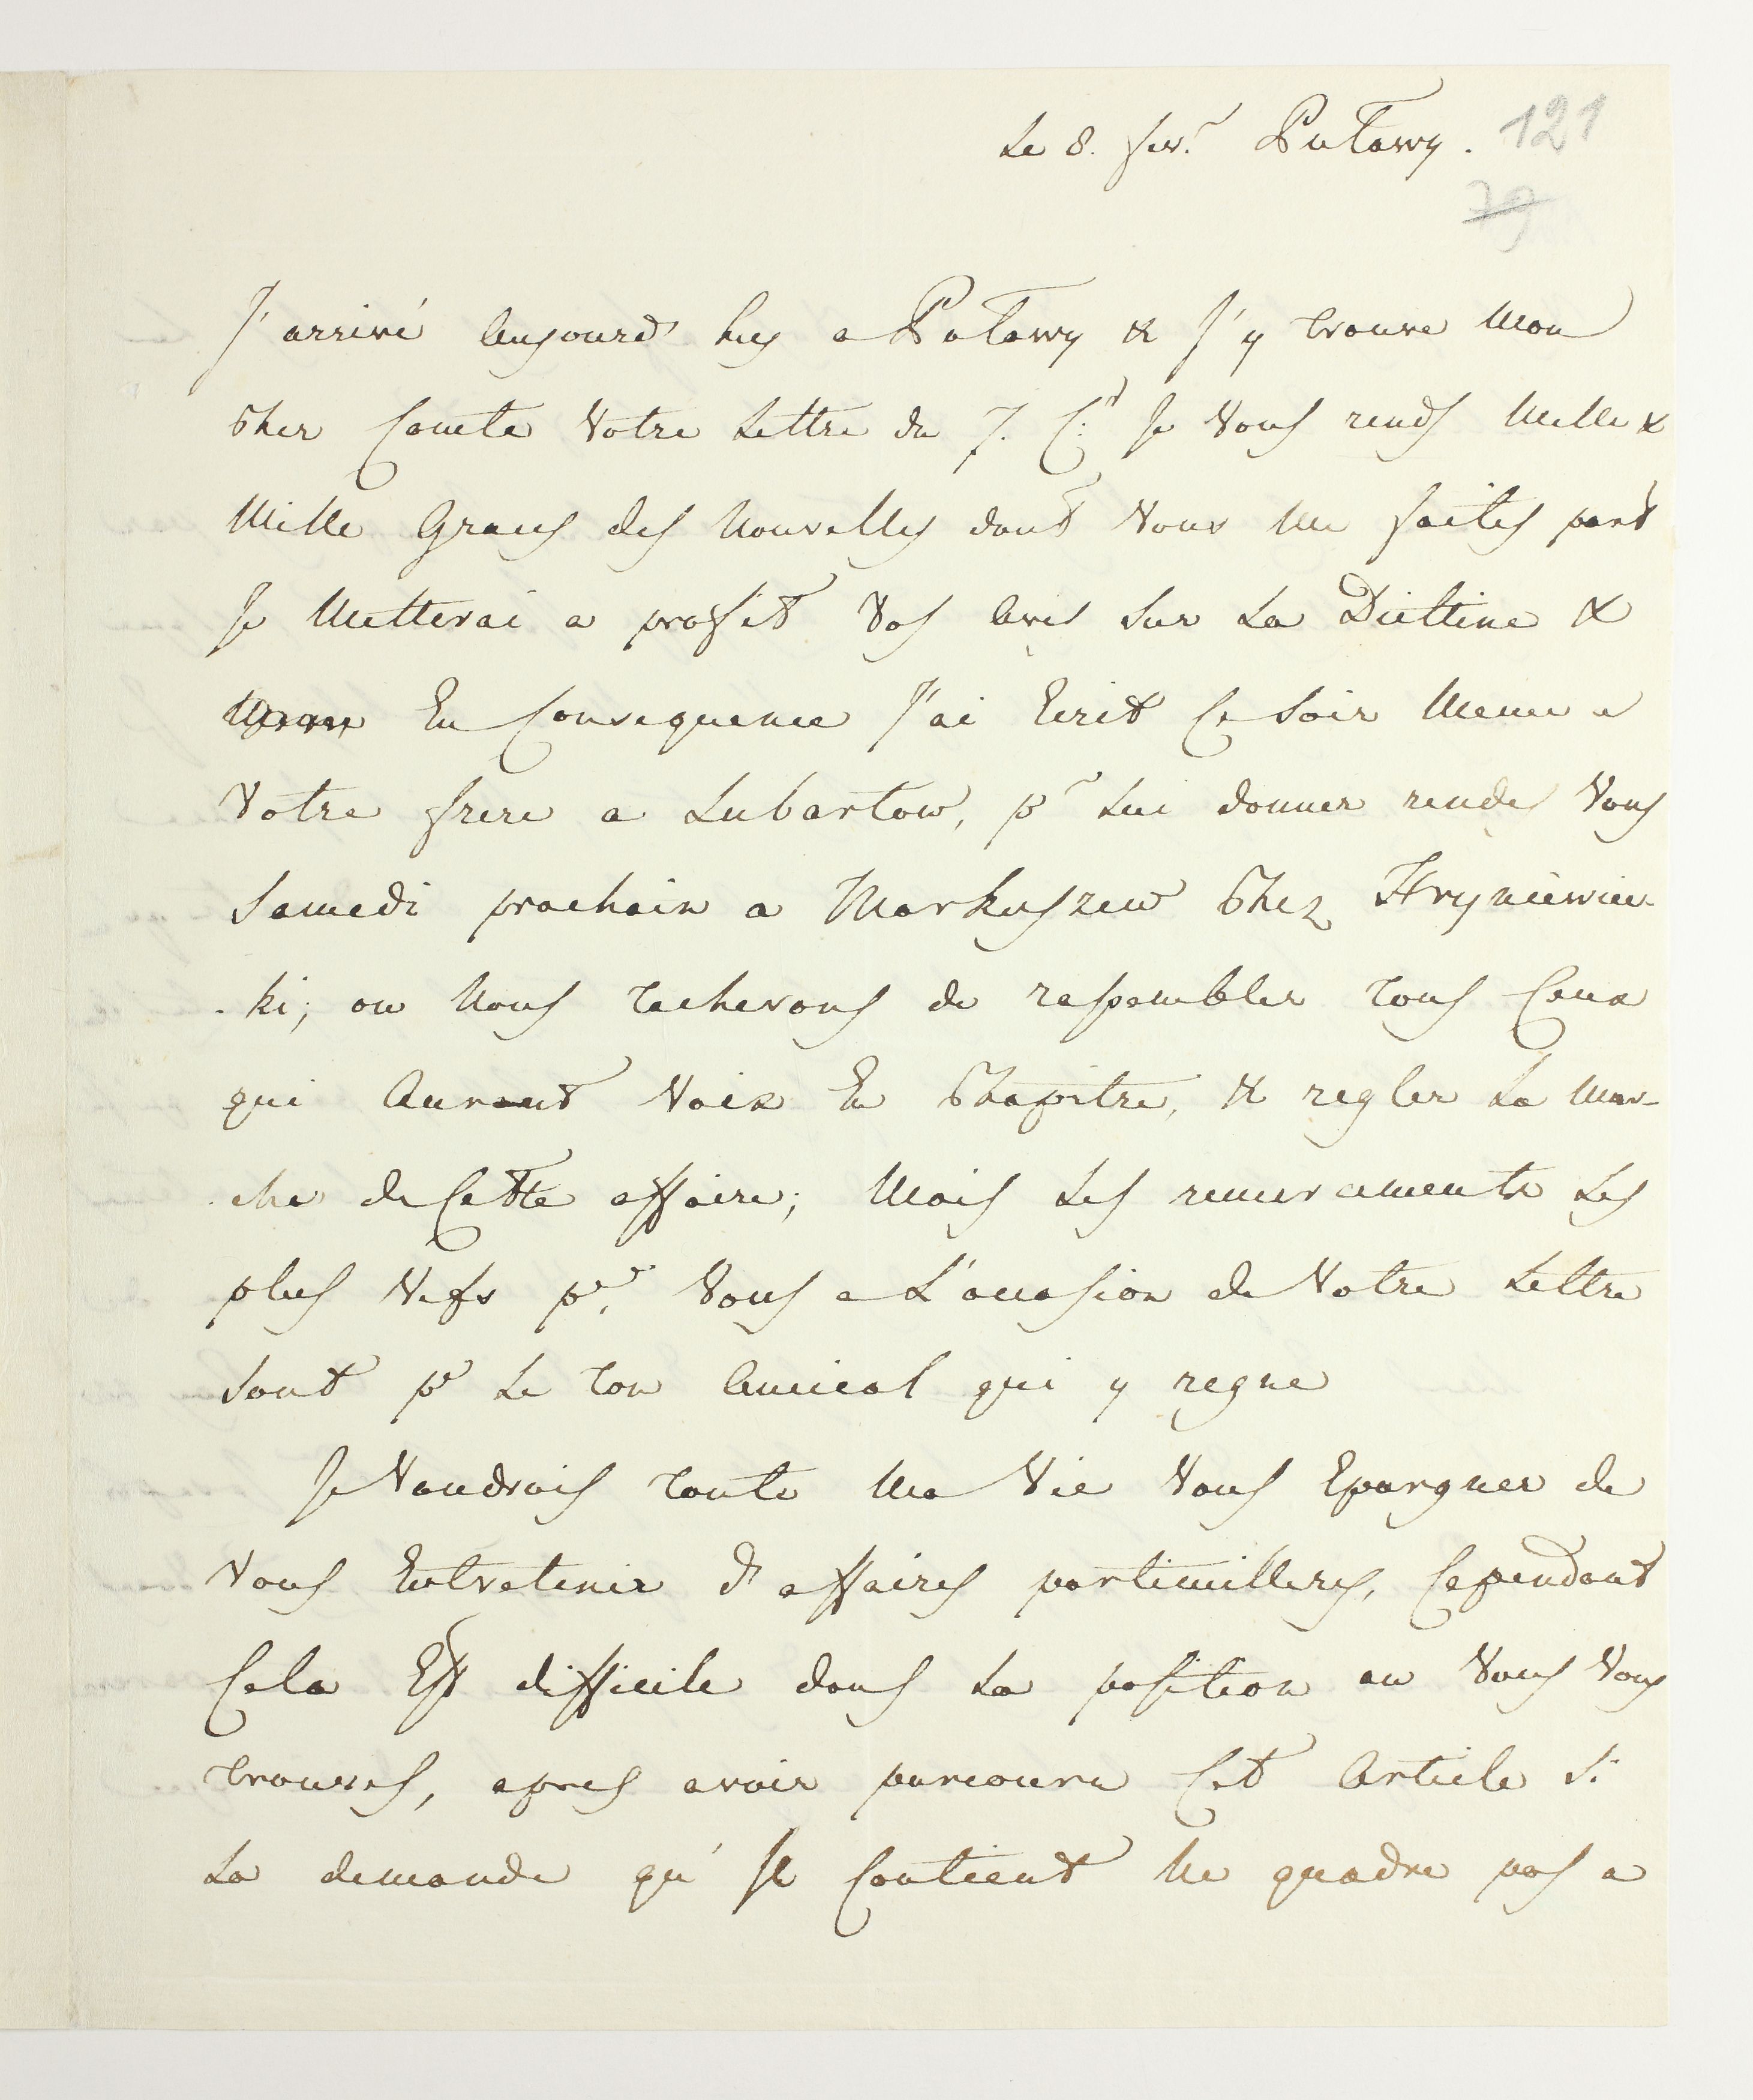 Le 8. fev.r Pulawy. 121
79
J'arrivé Aujourd'huy a Pulawy & J'y trouve Mon
Cher Comte Votre Lettre du 7. C.t Je Vous rends Mille &
Mille Graces des Nouvelles dont Vous Me faites part
Je Metterai a profit Vos Avis sur La Diettine &
En Consequence J'ai Ecrit Ce Soir Meme a
Votre frere a Lubartow, pr Lui donner rendes Vous
Samedi prochain a Markuszew Chez Hryniewiec-
-ki; ou Nous tacherons de rassembler tous Ceux
qui Auront Voix En Chapitre, & regler La Mar-
-che de Cette affaire; Mais Les remerciements Les
plus Vifs pr. Vous a L'occasion de Votre Lettre
sont pr Le ton Amical qui y regne
Je Voudrais toute Ma Vie Vous Epargner de
Vous Entretenir d'affaires particuilleres, Cependant
Cela Est difficile dans La position ou Vous Vous
trouves, apres avoir parcouru Cet Article Si
La demande qu'Il Contient Ne quadre pas a